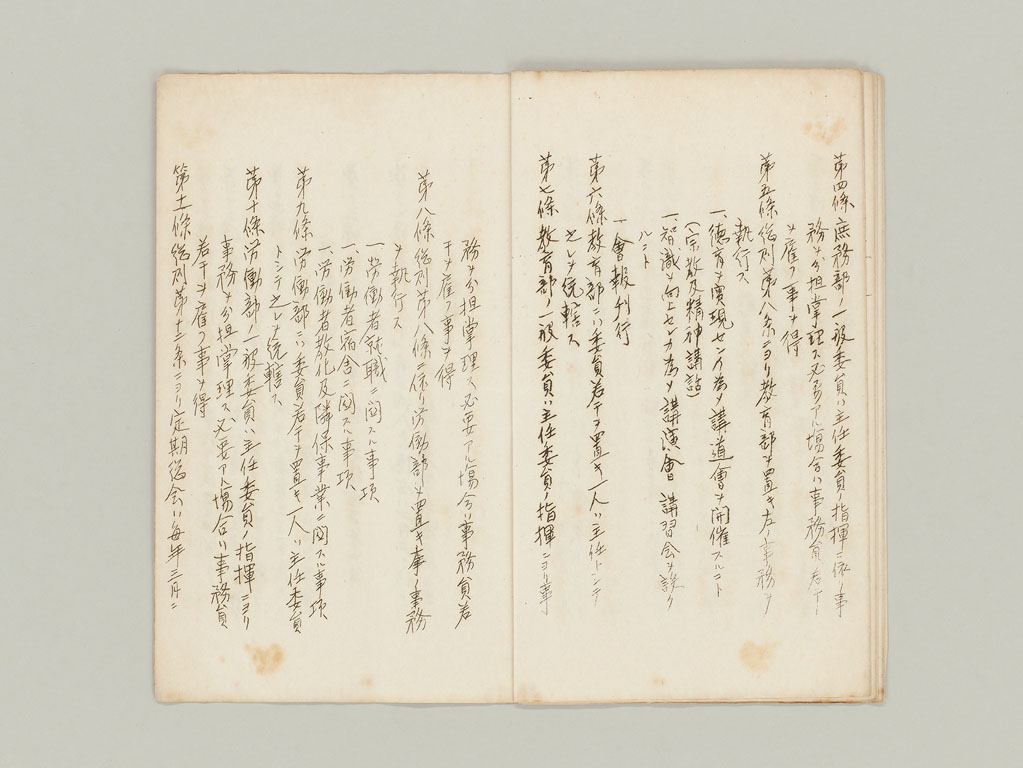 第四條庶務部ノ一般委員ハ主任委員ノ指揮ニ依リ事
務ヲ分担掌理ス必要アル場合ハ事務員若干
ヲ雇フ事ヲ得
第五條総則第八条ニヨリ教育部ヲ置キ左ノ事務ヲ
執行ス
一、徳育ヲ実現センガ為メ講道會ヲ開催スルコト
(宗教及精神講話)
一、智識ノ向上センガ為メ講演會講習会ヲ設ク
ルコト
一會報刊行
第六條教育部ニハ委員若干ヲ置キ一人ハ主任トシテ
之レヲ統轄ス
第七條教育部ノ一般委員ハ主任委員ノ指揮ニヨリ事
務ヲ分担掌理ス必要アル場合ハ事務員若
干ヲ雇フ事ヲ得
第八條総則第八條ニ依リ労働部ヲ置キ事ノ事務
ヲ執行ス
一、労働者就職ニ関スル事項
一、労働者宿舎ニ関スル事項
一、労働者教化及隣保事業ニ関スル事項
第九條労働部ニハ委員若干ヲ置キ一人ハ主任委員
トシテ之レヲ統轄ス
第十條労働部ノ一般委員ハ主任委員ノ指揮ニヨリ
事務ヲ分担掌理ス必要アル場合ハ事務員
若干ヲ雇フ事ヲ得
第十一條総則第十二条ニヨリ定期総会ハ毎年三月ニ